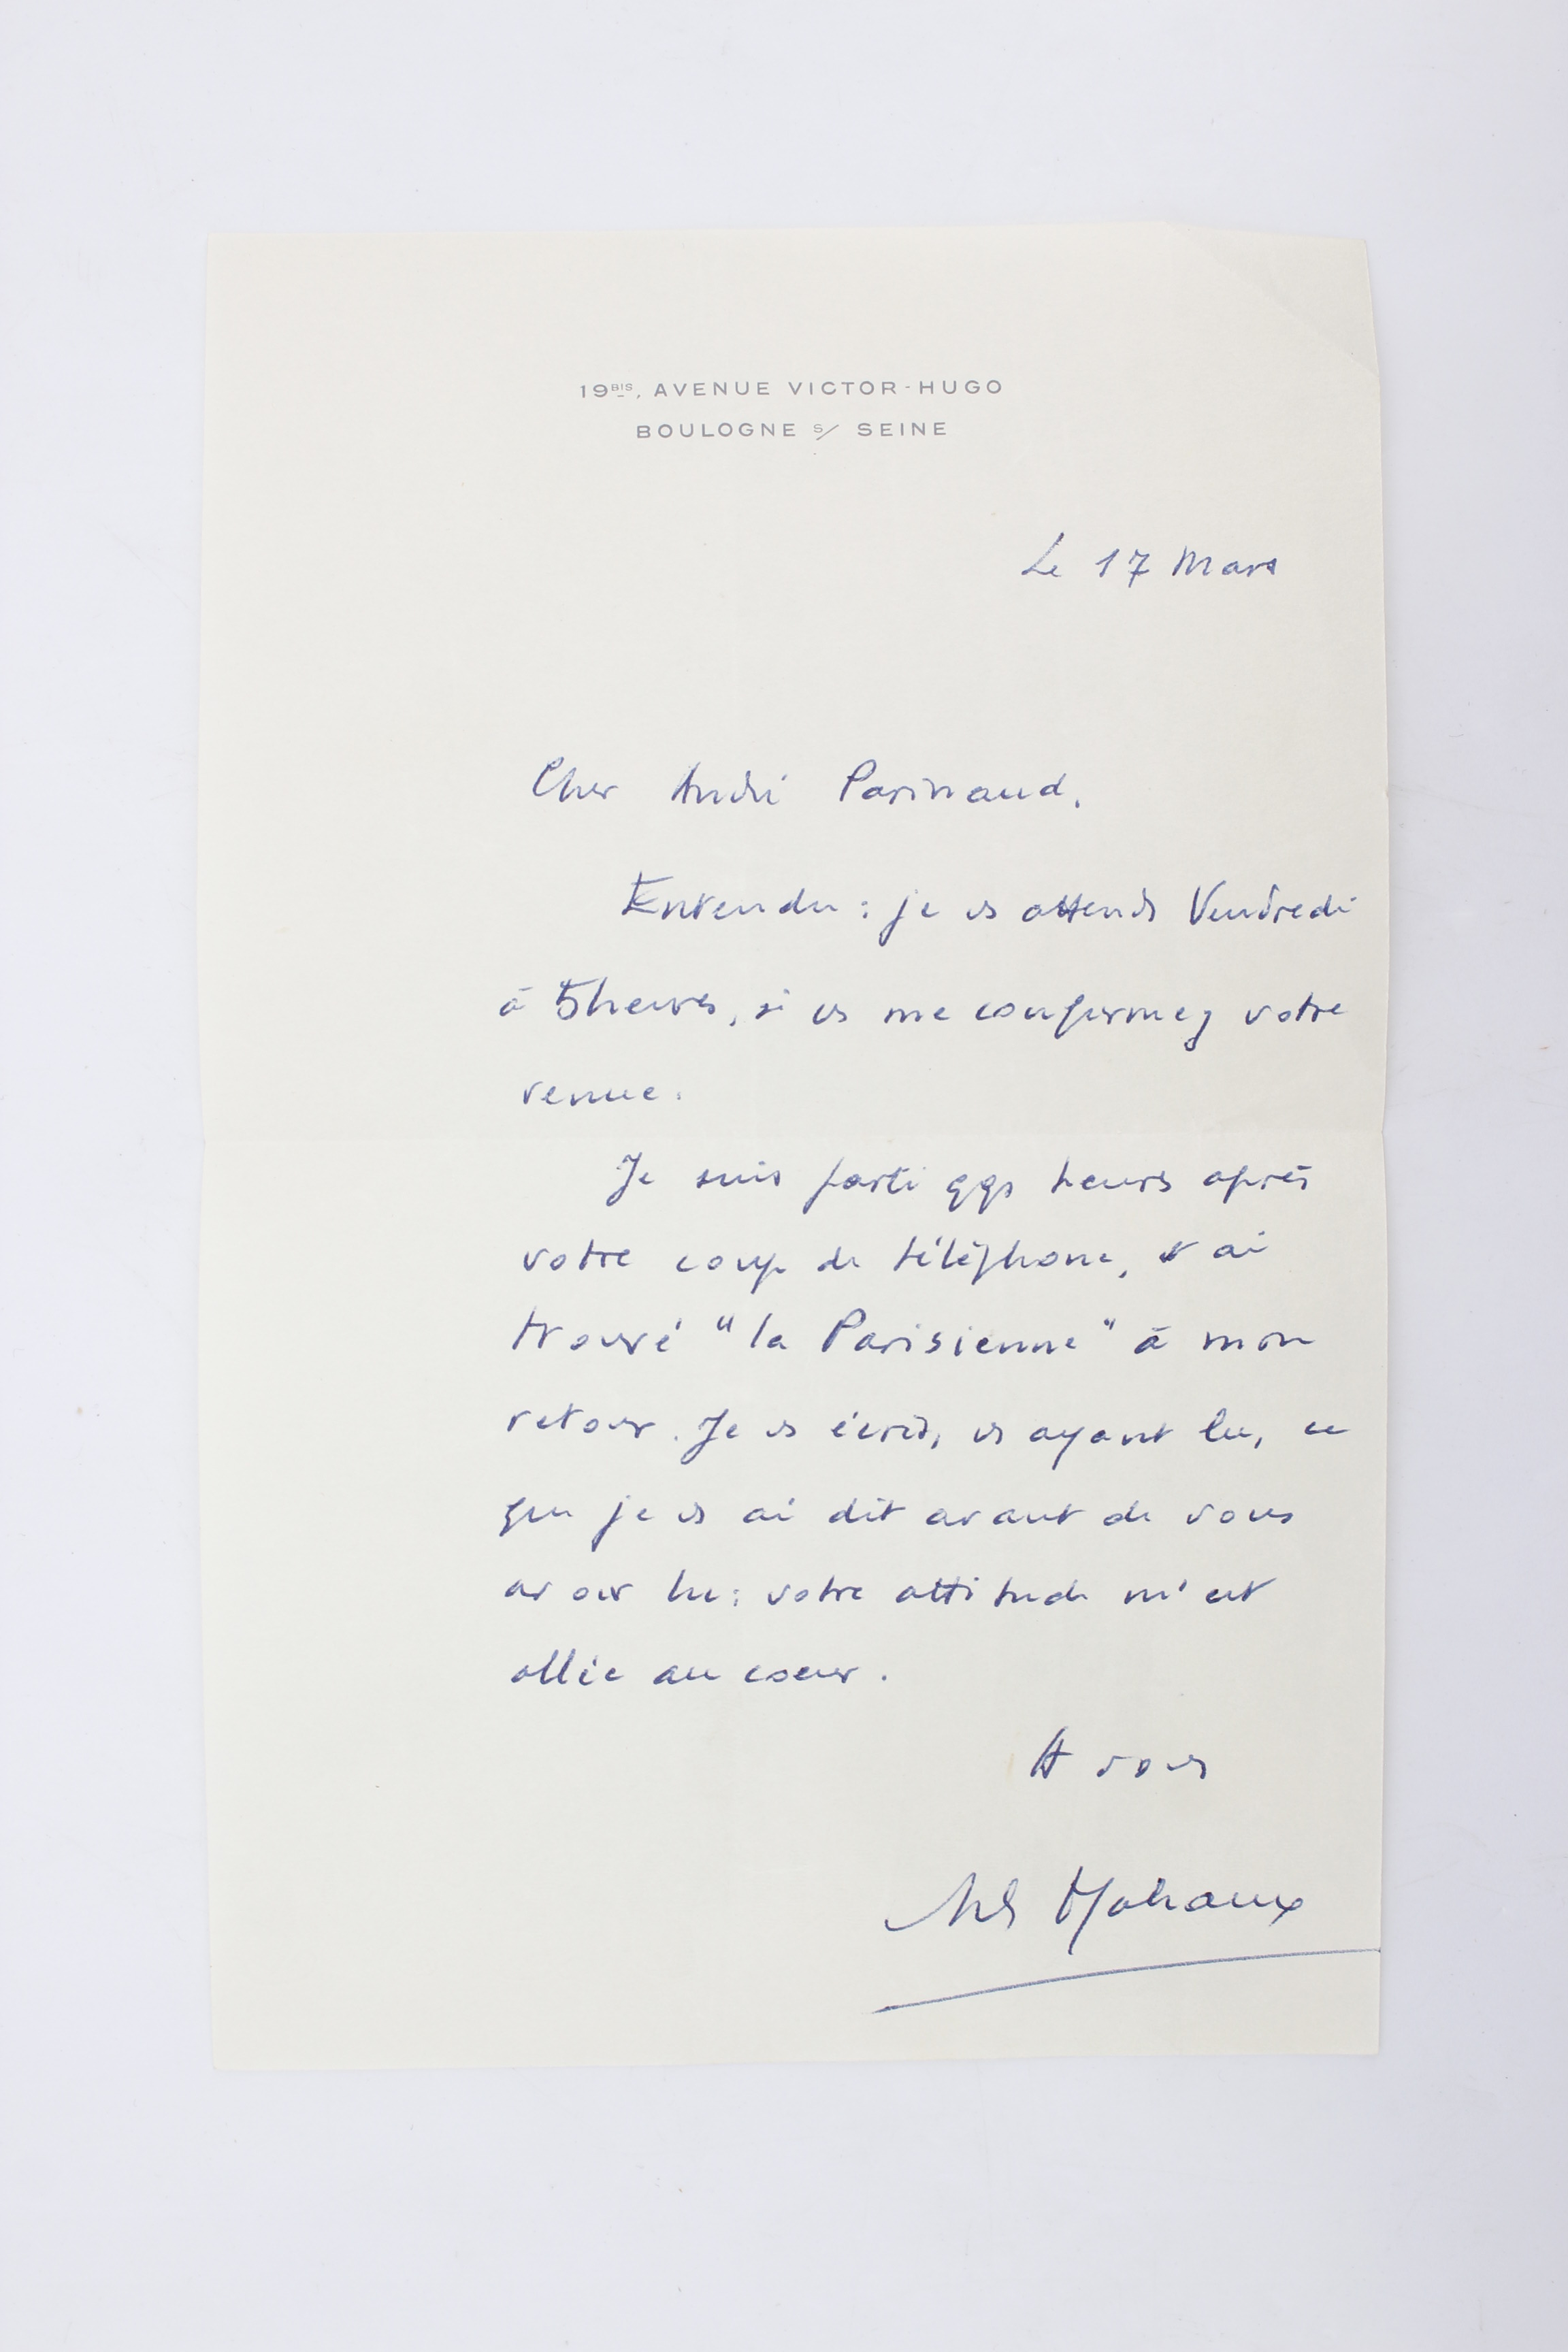 19BIS, AVENUE VICTOR-HUGO
BOULOGNE S/ SEINE
Le 17 Mars
Cher André Parinaud,
Entendu : je vs attends Vendredi
à 5 heures, si vs me confirmez votre
venue.
Je suis parti qqs heures après
votre coup de téléphone, et ai
trouvé "la Parisienne" à mon
retour. Je vs écris, vs ayant lu, ce
que je vs ai dit avant de vous
avoir lu : votre attitude m'est
allée au coeur.
A vous